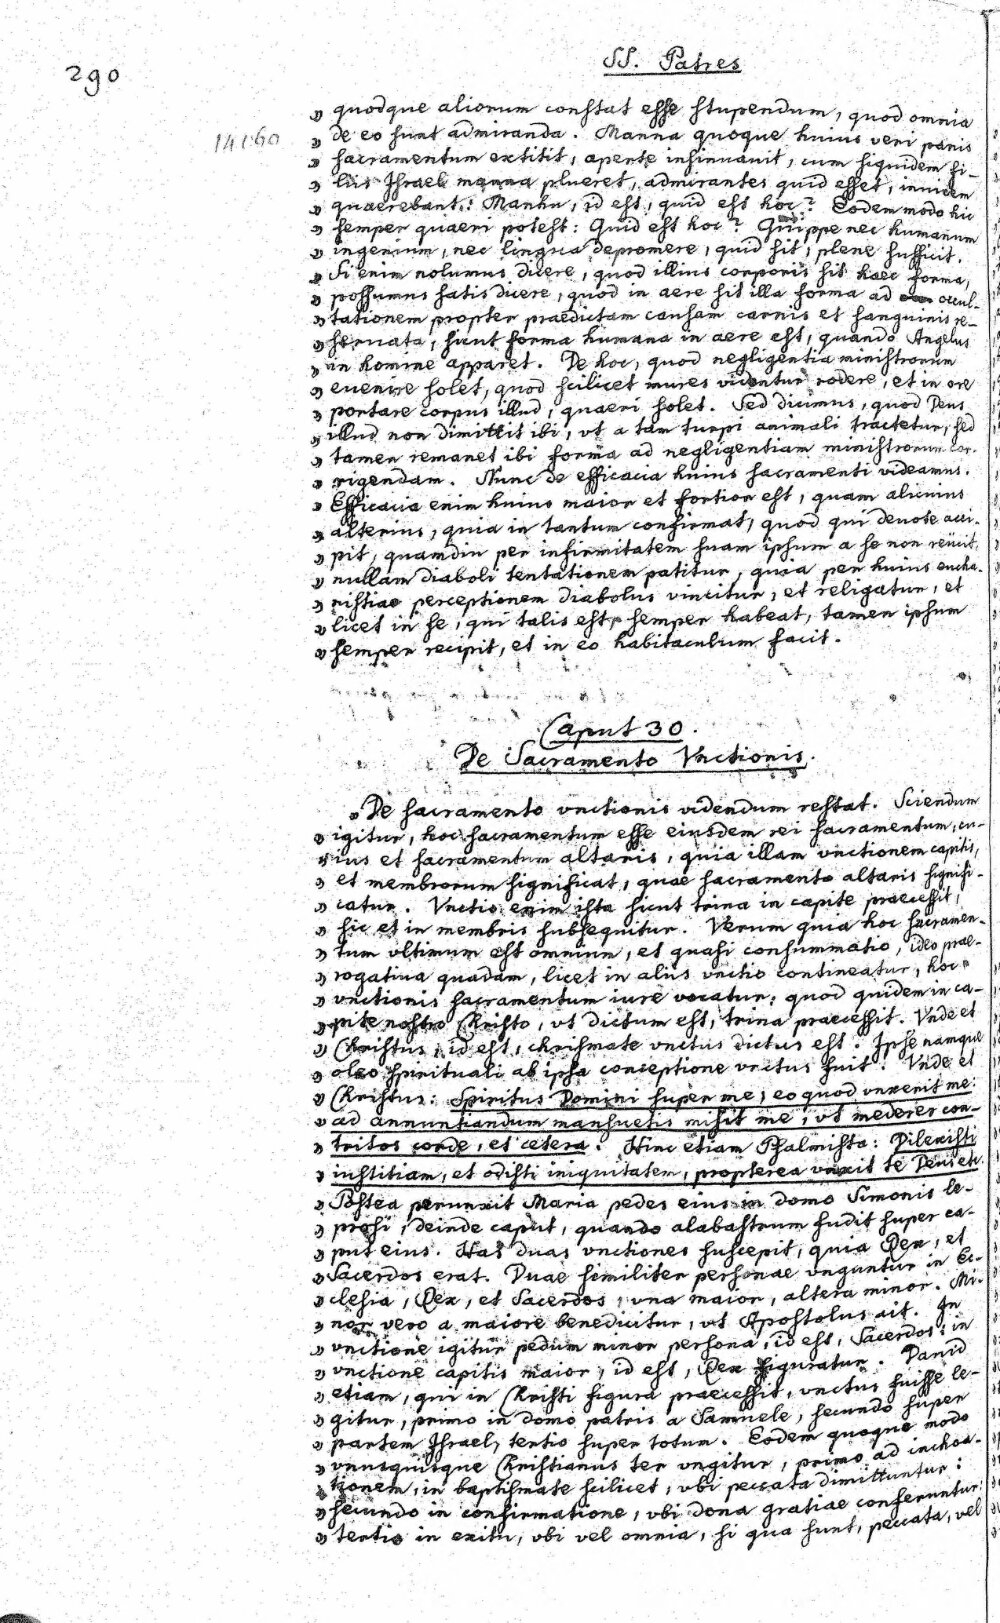 290
SS. Patres
141:60
„ quodque aliorum constat esse stupendum, quod omnia
„ de eo sunt admiranda. Manna quoque huius veri panis
„ sacramentum extitit, aperte insinuavit, cum siquidem fi-
„ liis Israel manna plueret, admirantes quid esset, invicem
„ quaerebant: Manhu, id est, quid est hoc? Eodem modo hic
„ semper quaeri potest: Quid est hoc? Quippe nec humanum
„ ingenium, nec lingua depromere, quid sit, plene sufficit.
„ Si enim nolumus dicere, quod illius corporis sit haec forma,
„ possumus satis dicere, quod in aere sit illa forma ad occul-
„ tationem propter praedictam causam carnis et sanguinis re-
„ servata, sicut forma humana in aere est, quando Angelus
„ in homine apparet. De hoc, quod negligentia ministrorum
„ evenire solet, quod scilicet mures videntur rodere, et in ore
„ portare corpus illud, quaeri solet. Sed dicimus, quod Deus
„ illud non dimittit ibi, vt a tam turpi animali tractetur, sed
„ tamen remanet ibi forma ad negligentiam ministrorum cor-
„ rigendam. Nunc de efficacia huius sacramenti videamus.
„ Efficacia enim huius maior et fortior est, quam alicuius
„ alterius, quia in tantum confirmat, quod qui devote acci-
„ pit, quamdiu per infirmitatem suam ipsum a se non reiicit,
„ nullam diaboli tentationem patitur, quia per huius eucha-
„ ristiae perceptionem diabolus vincitur, et religatur, et
„ licet in se, qui talis est, semper habeat, tamen ipsum
„ semper recipit, et in eo habitaculum facit.
Caput 30.
De Sacramento Vnctionis.
„ De sacramento vnctionis videndum restat. Sciendum
„ igitur, hoc sacramentum esse eiusdem rei sacramentum, cu-
„ ius et sacramentum altaris, quia illam vnctionem capitis,
„ et membrorum significat, quae sacramento altaris signifi-
„ catur. Vnctio enim ista sicut trina in capite praecessit,
„ sic et in membris subsequitur. Verum quia hoc sacramen-
„ tum vltimum est omnium, et quasi consummatio, ideo prae-
„ rogativa quadam, licet in aliis vnctio contineatur, hoc
„ vnctionis sacramentum iure vocatur: quod quidem in ca-
„ pite nostro Christo, vt dictum est, trina praecessit. Vnde et
„ Christus, id est, chrismate vnctus dictus est. Ipse namque
„ oleo spirituali ab ipsa conceptione vnctus fuit. Vnde et
„ Christus: Spiritus Domini super me, eo quod vnxerit me:
„ ad annuntiandum mansuetis misit me, vt mederer con-
„ tritos corde, et cetera. Hinc etiam Psalmista: Dilexisti
„ iustitiam, et odisti iniquitatem, propterea vnxit te Deus etc.
„ Postea perunxit Maria pedes eius in domo Simonis le-
„ prosi, deinde caput, quando alabastrum fudit super ca-
„ put eius. Has duas vnctiones suscepit, quia Rex, et
„ Sacerdos erat. Duae similiter personae vnguntur in Ec-
„ clesia, Rex, et Sacerdos, vna maior, altera minor. Mi-
„ nor vero a maiore benedicitur, vt Apostolus ait. In
„ vnctione igitur pedum minor persona, id est, Sacerdos: in
„ vnctione capitis maior, id est, Rex figuratur. David
„ etiam, qui in Christi figura praecessit, vnctus fuisse le-
„ gitur, primo in domo patris a Samuele, secundo super
„ partem Israel, tertio super totum. Eodem quoque modo
„ vnusquisque Christianus ter vngitur, primo ad inchoa-
„ tionem, in baptismate scilicet, vbi peccata dimittuntur:
„ secundo in confirmatione, vbi dona gratiae conferuntur:
„ tertio in exitu, vbi vel omnia, si qua sunt, peccata, vel